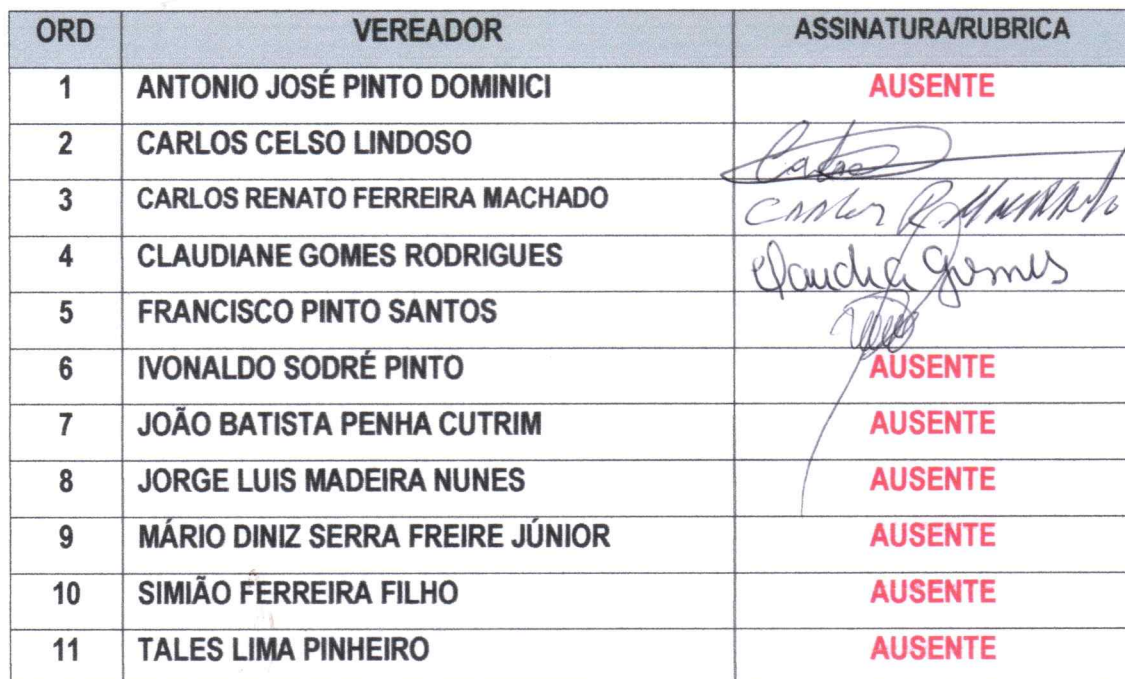 ORD VEREADOR ASSINATURA/RUBRICA
1 ANTONIO JOSÉ PINTO DOMINICI AUSENTE
2 CARLOS CELSO LINDOSO Carlos
3 CARLOS RENATO FERREIRA MACHADO Carlos R Machado
4 CLAUDIANE GOMES RODRIGUES Claudia Gomes
5 FRANCISCO PINTO SANTOS
6 IVONALDO SODRÉ PINTO AUSENTE
7 JOÃO BATISTA PENHA CUTRIM AUSENTE
8 JORGE LUIS MADEIRA NUNES AUSENTE
9 MÁRIO DINIZ SERRA FREIRE JÚNIOR AUSENTE
10 SIMIÃO FERREIRA FILHO AUSENTE
11 TALES LIMA PINHEIRO AUSENTE